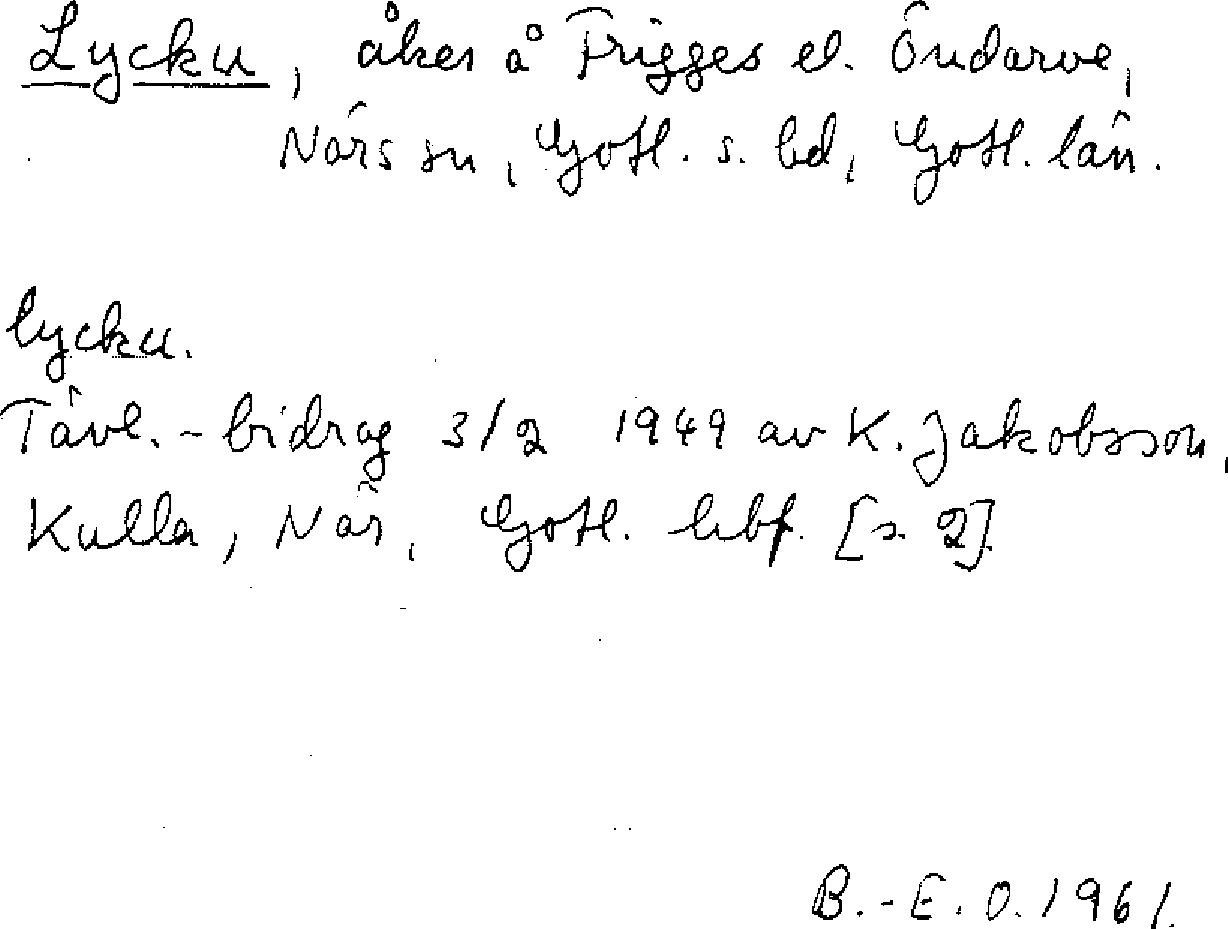 Lycku, åker å Frigges el. Öndarve,
Närs sn, Gotl. s. hd, Gotl. län.
lycku.
Tävl.-bidrag 3/2 1949 av K. Jakobsson,
Kulla, När, Gotl. hbf. [s. 2].
B.-E. O. 1961.